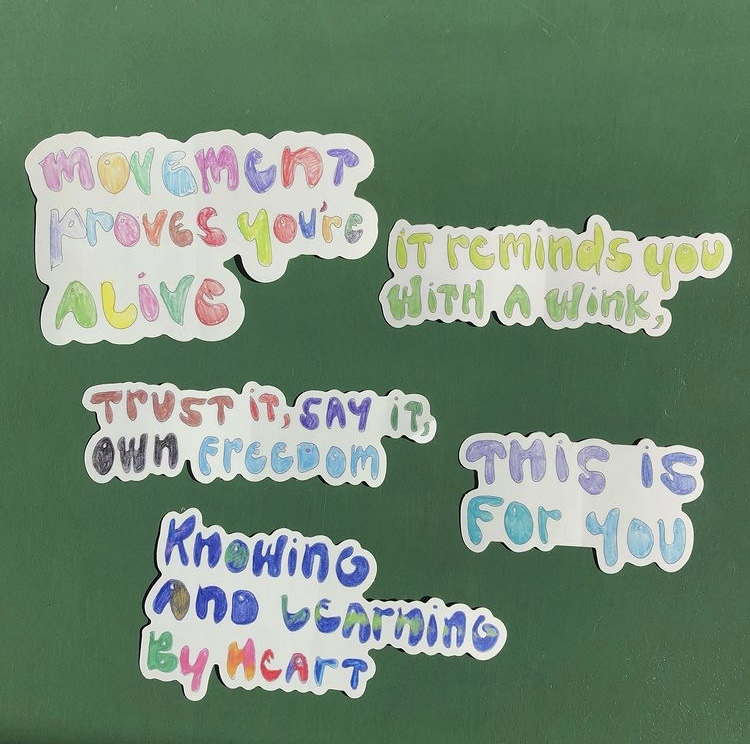 MOVEMENT
PROVES YOU'RE
ALIVE
IT REMINDS YOU
WITH A WINK,
TRUST IT, SAY IT,
OWN FREEDOM
THIS IS
FOR YOU
KNOWING
AND LEARNING
BY HEART